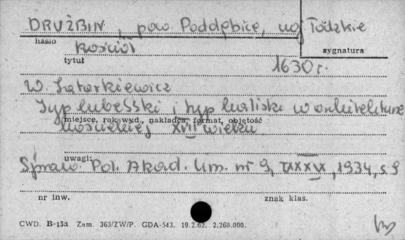 DRUŻBIN, pow. Poddębice, woj. Łódzkie
hasło
kościół
sygnatura
tytuł
1630 r.
W. Łatarkiewicz
Typ lubelski i typ kaliski w architekturze
miejsce, rok wyd., nakładca, format, objętość
kościelnej XVII wieku
uwagi
Spraw. Pol. Akad. Um. nr 9, 1934, s. 9
nr inw.
znak klas.
CWD. B-15a Zam. 363/ZW/P. GDA-543. 19.2.62. 2.268.000.